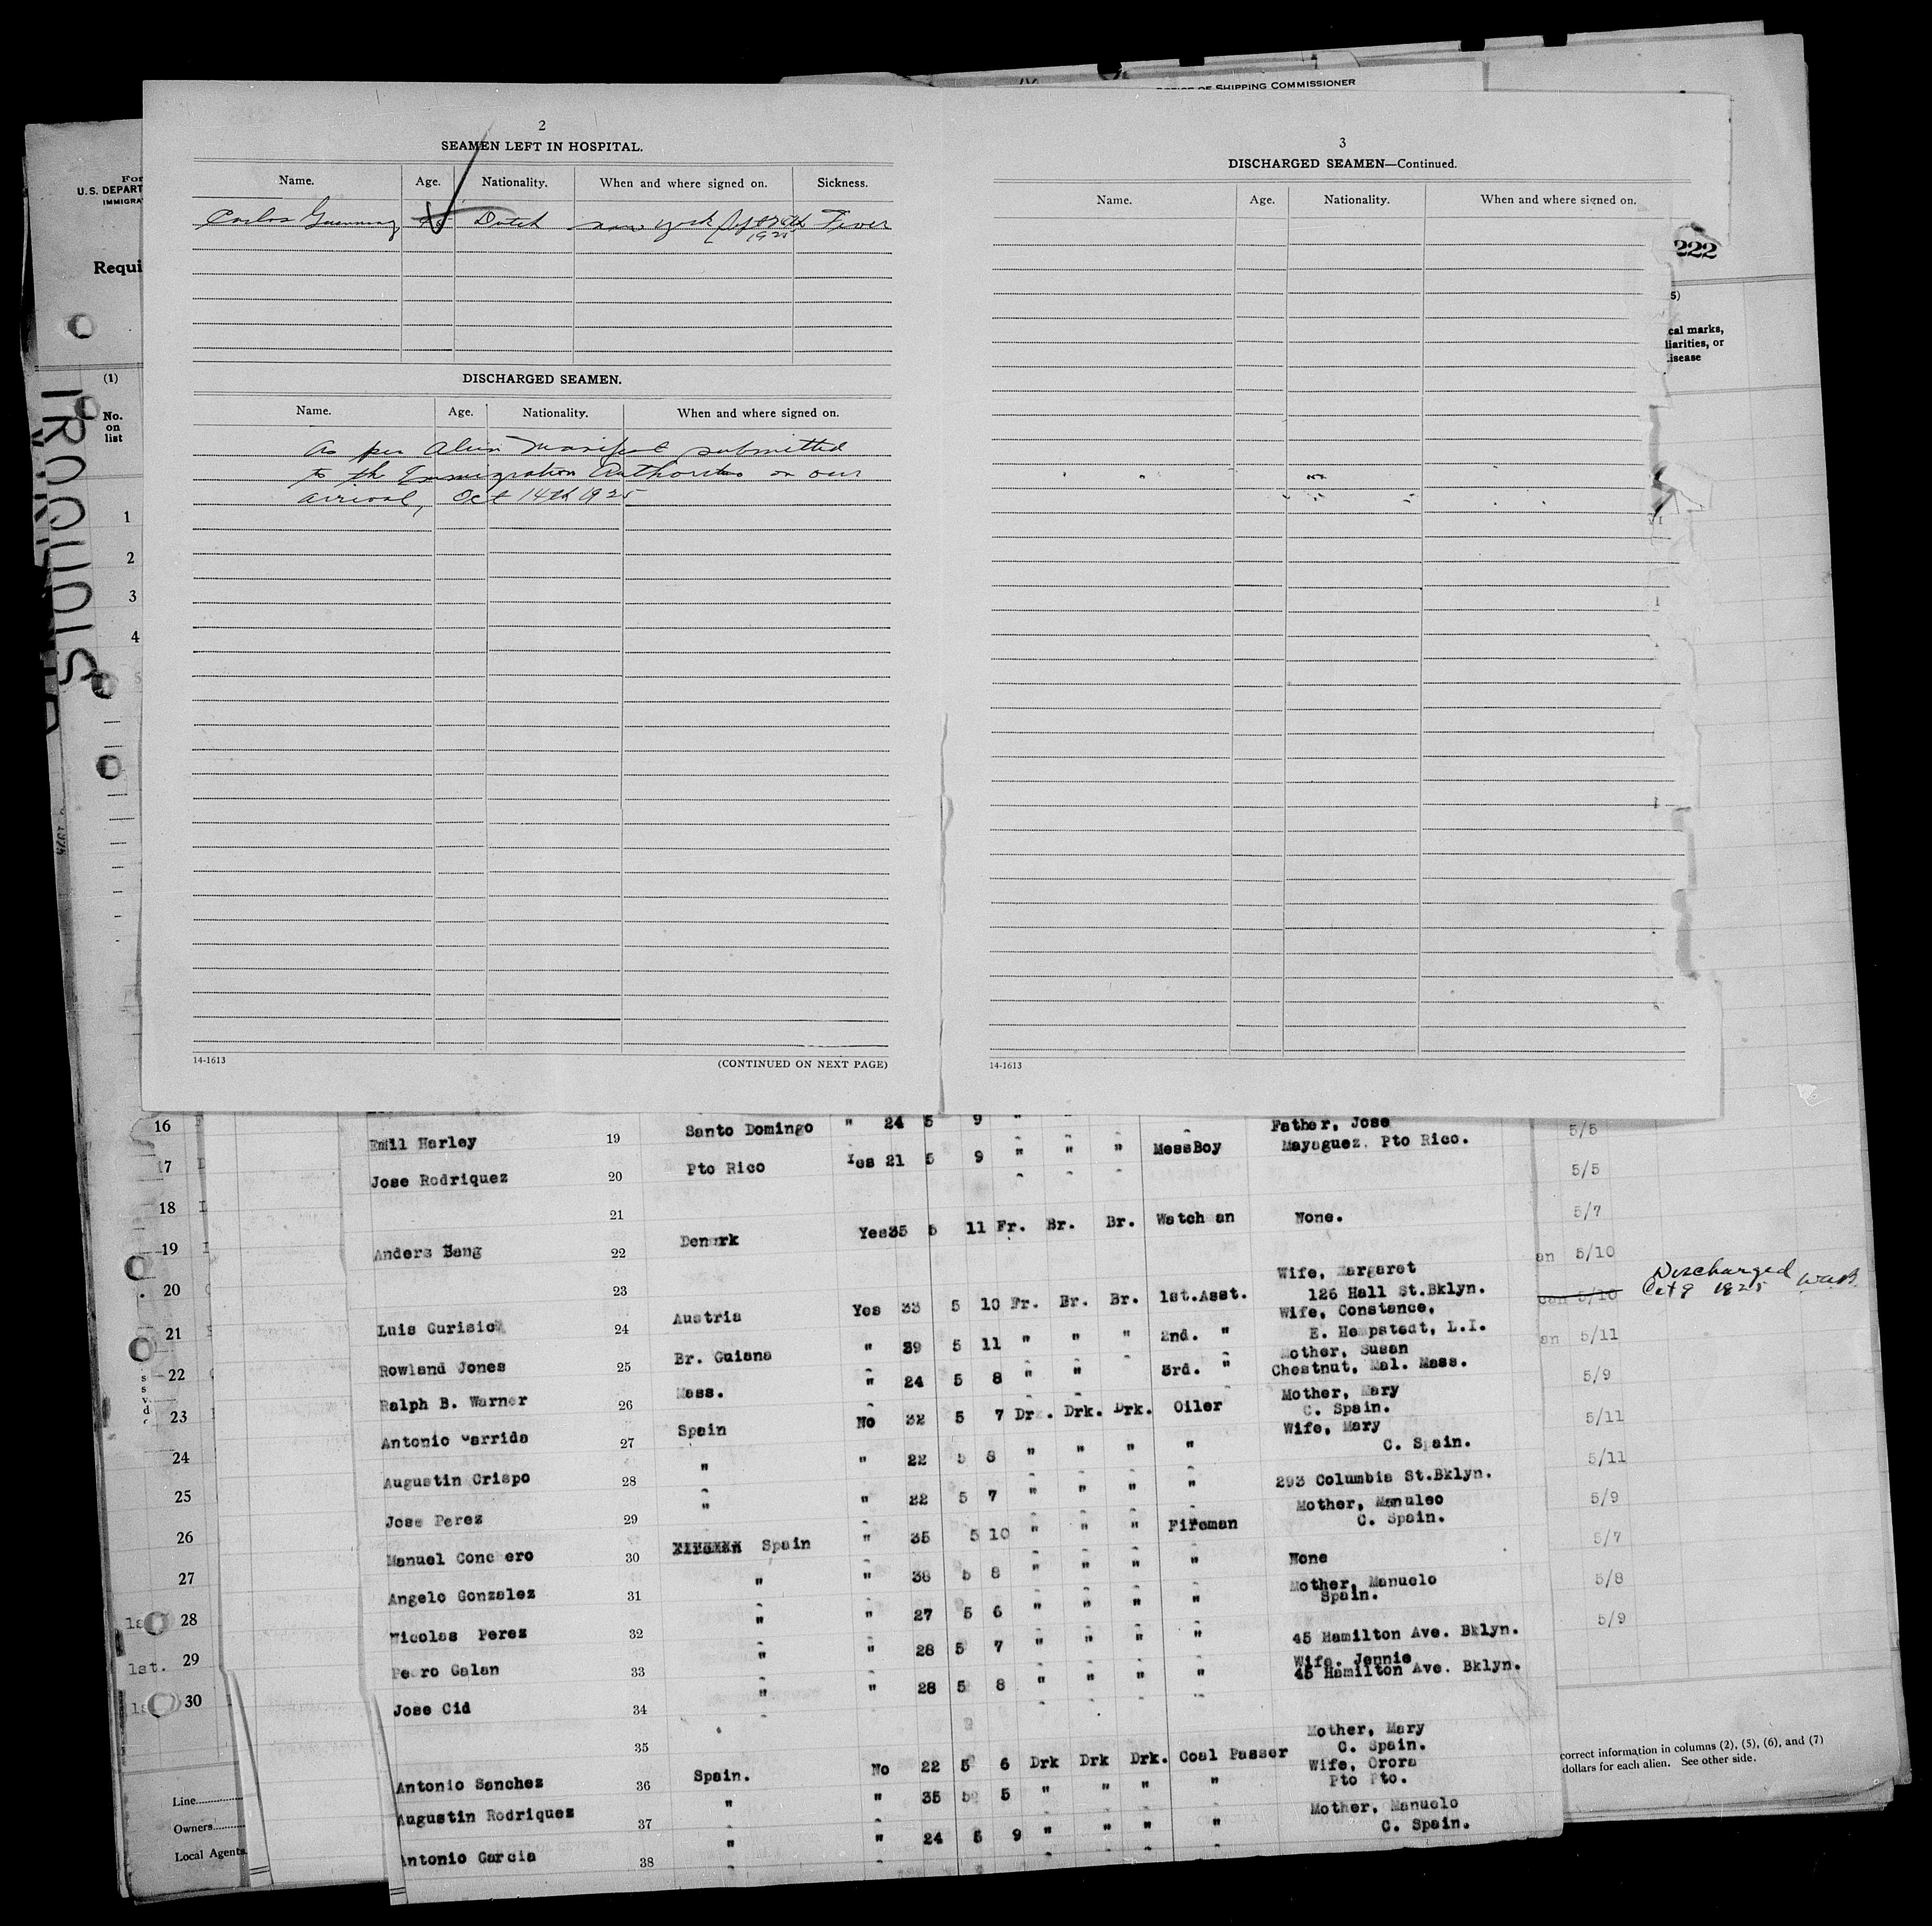 OFFICE OF SHIPPING COMMISSIONER
2
SEAMEN LEFT IN HOSPITAL.
Name. Age. Nationality. When and where signed on. Sickness.
Carlos Dutch new york 1925 Fever
DISCHARGED SEAMEN.
Name. Age. Nationality. When and where signed on.
As per Alien Manifest submitted
to the Immigration Authorities on our
arrival, Oct 14th 1925
14-1613 (CONTINUED ON NEXT PAGE)
3
DISCHARGED SEAMEN—Continued.
Name. Age. Nationality. When and where signed on.
14-1613
For
U.S. DEPART
IMMIGRA
Requi
(1)
No.
on
list
IROQUOIS
1
2
3
4
222
5)
cal marks,
liarities, or
isease
16
17
18
19
20
21
22
23
24
25
26
27
28
29
30
1st.
Line
Owners
Local Agents
Emil Harley 19 Santo Domingo " 24 5 9 "
Father, Jose
Jose Rodriquez 20 Pto Rico Yes 21 5 9 " " " MessBoy Mayaguez, Pto Rico.
21
Anders Bang 22 Denmark Yes 35 5 11 Fr. Br. Br. Watchman None.
23
Wife, Margaret
Luis Gurisich 24 Austria Yes 33 5 10 Fr. Br. Br. 1st.Asst. 126 Hall St.Bklyn.
Wife, Constance,
Rowland Jones 25 Br. Guiana " 39 5 11 " " " 2nd. " E. Hempstedt, L.I.
Mother, Susan
Ralph B. Warner 26 Mass. " 24 5 8 " " 3rd. " Chestnut, Mal. Mass.
Mother, Mary
Antonio Garrida 27 Spain No 32 5 7 Drk. Drk. Drk. Oiler C. Spain.
Wife, Mary
Augustin Crispo 28 " " 22 5 8 " " " " C. Spain.
Jose Perez 29 " " 22 5 7 " " " " 293 Columbia St.Bklyn.
Mother, Manuleo
Manuel Conchero 30 Spain " 35 5 10 " " " Fireman C. Spain.
Angelo Gonzalez 31 " " 38 5 8 " " " " None
Mother, Manuelo
Nicolas Perez 32 " " 27 5 6 " " " " Spain.
Pedro Galan 33 " " 28 5 7 " " " " 45 Hamilton Ave. Bklyn.
Wife. Jennie
Jose Cid 34 " " 28 5 8 " " " " 45 Hamilton Ave. Bklyn.
35
Mother, Mary
Antonio Sanchez 36 Spain. No 22 5 6 Drk Drk Drk. Coal Passer C. Spain.
Wife, Orora
Augustin Rodriquez 37 " " 35 5 5 " " " " Pto Pto.
Mother, Manuelo
Antonio Garcia 38 " " 24 5 9 " " " " C. Spain.
5/5
5/5
5/7
an 5/10
can 5/10 Discharged
Oct 9 1925
an 5/11
5/9
5/11
5/11
5/9
5/7
5/8
5/9
correct information in columns (2), (5), (6), and (7)
dollars for each alien. See other side.